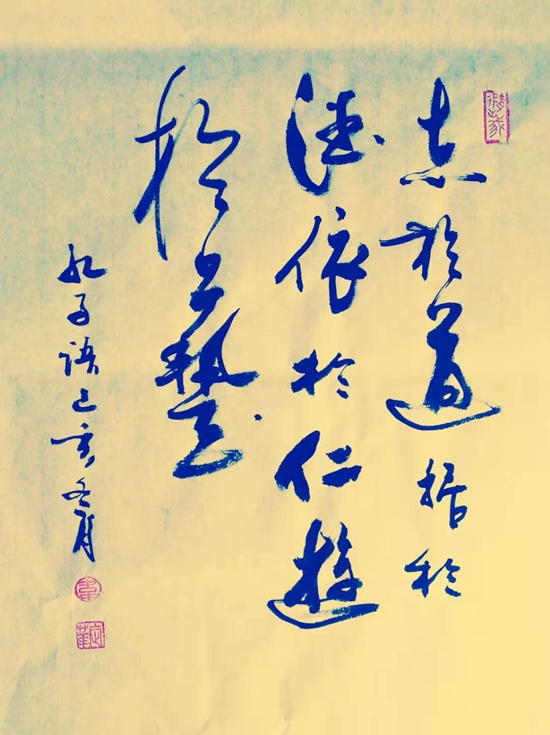 志於道据於
德依於仁遊
於藝
孔子語己亥冬月